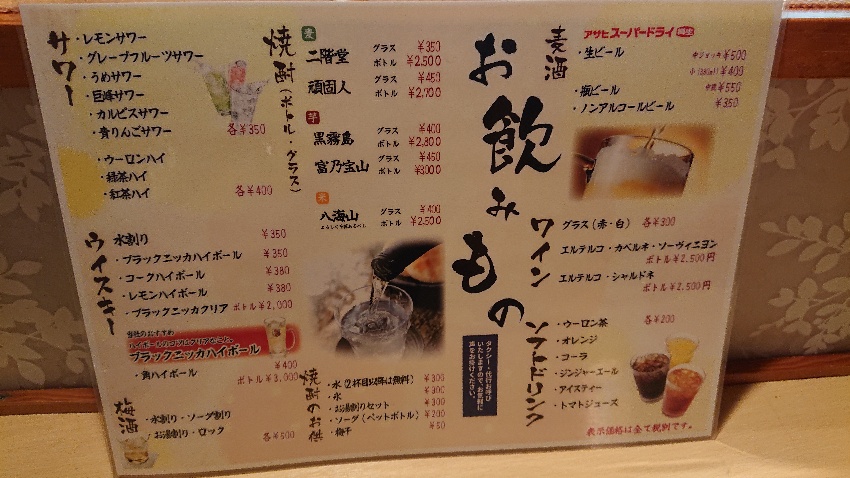 お飲みもの
麦酒
アサヒスーパードライ
・生ビール
中ジョッキ ¥500
¥400
・瓶ビール
中瓶 ¥550
・ノンアルコールビール ¥350
ワイン
グラス(赤・白) 各¥300
エルテルコ・カベルネ・ソーヴィニヨン
ボトル¥2.500円
エルテルコ・シャルドネ
ボトル¥2.500円
ソフトドリンク
・ウーロン茶 各¥200
・オレンジ
・コーラ
・ジンジャーエール
・アイスティー
・トマトジュース
表示価格は全て税別です。
タクシー・代行お呼び
いたしますので、お気軽に
声をお掛けください。
焼酎(ボトル・グラス)
麦
二階堂 グラス ¥350
ボトル ¥2.500
頑固人 グラス ¥450
ボトル ¥2,700
芋
黒霧島 グラス ¥400
ボトル ¥2,800
富乃宝山 グラス ¥450
ボトル ¥3000
米
八海山 グラス ¥400
ボトル ¥2,500
よろしく千萬あるべし
焼酎のお供
・水(2杯目以降は無料) ¥300
・氷 ¥300
・お湯割りセット ¥300
・ソーダ(ペットボトル) ¥200
・梅干 ¥50
サワー
・レモンサワー
・グレープフルーツサワー
・うめサワー
・巨峰サワー
・カルピスサワー
・青りんごサワー
各¥350
・ウーロンハイ
・緑茶ハイ
・紅茶ハイ
各¥400
ウイスキー
水割り ¥350
・ブラックニッカハイボール ¥350
・コークハイボール ¥380
・レモンハイボール ¥380
・ブラックニッカクリア ボトル¥2,000
当社のおすすめ
ハイボールのコクはクリアなこと。
ブラックニッカハイボール
・角ハイボール ¥400
ボトル¥3,000
梅酒
・水割り・ソーダ割り
・お湯割り・ロック
各¥500